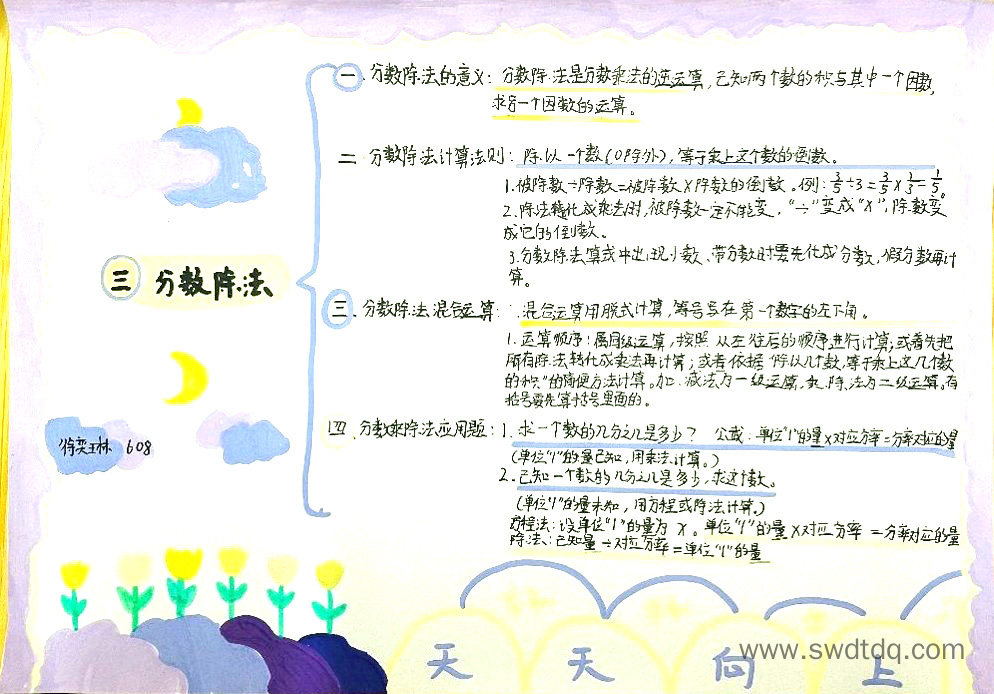 三 分数除法
一 分数除法的意义：分数除法是分数乘法的逆运算，已知两个数的积与其中一个因数，
求另一个因数的运算。
二 分数除法计算法则：除以一个数(0除外)，等于乘上这个数的倒数。
1.被除数÷除数=被除数×除数的倒数。例：3/5÷3=3/5×1/3=1/5。
2.除法转化成乘法时，被除数一定不能变，“÷”变成“×”，除数变
成它的倒数。
3.分数除法算式中出现小数、带分数时要先化成分数，假分数再计
算。
三 分数除法混合运算：混合运算用脱式计算，等号写在第一个数字的左下角。
1.运算顺序：属同级运算，按照从左往后的顺序进行计算；或者先把
所有除法转化成乘法再计算；或者依据“除以几个数，等于乘上这几个数
的积”的简便方法计算。加、减法为一级运算，乘、除法为二级运算，有
括号要先算括号里面的。
四 分数乘除法应用题：1.求一个数的几分之几是多少？ 公式：单位“1”的量×对应分率=分率对应的量
(单位“1”的量已知，用乘法计算。)
2.已知一个数的几分之几是多少，求这个数。
(单位“1”的量未知，用方程或除法计算。)
方程法：设单位“1”的量为x。单位“1”的量×对应分率=分率对应的量
除法：已知量÷对应分率=单位“1”的量
608
天天向上
www.swdtdq.com